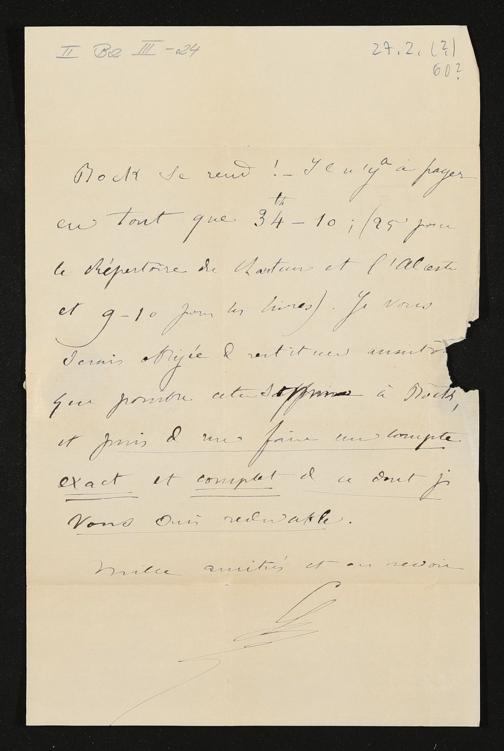 II Be III - 24
27.2. (?)
60?
Bock se rend ! - Il n'y a à payer
en tout que 34 th - 10; (25 pour
le Répertoire du Chanteur et l'Alceste
et 9-10 pour les livres). Je vous
serais obligée de restituer
que pourboire cette somme à Bock,
et puis de me faire un compte
exact et complet de ce dont je
vous suis redevable.
Mille amitiés et au revoir